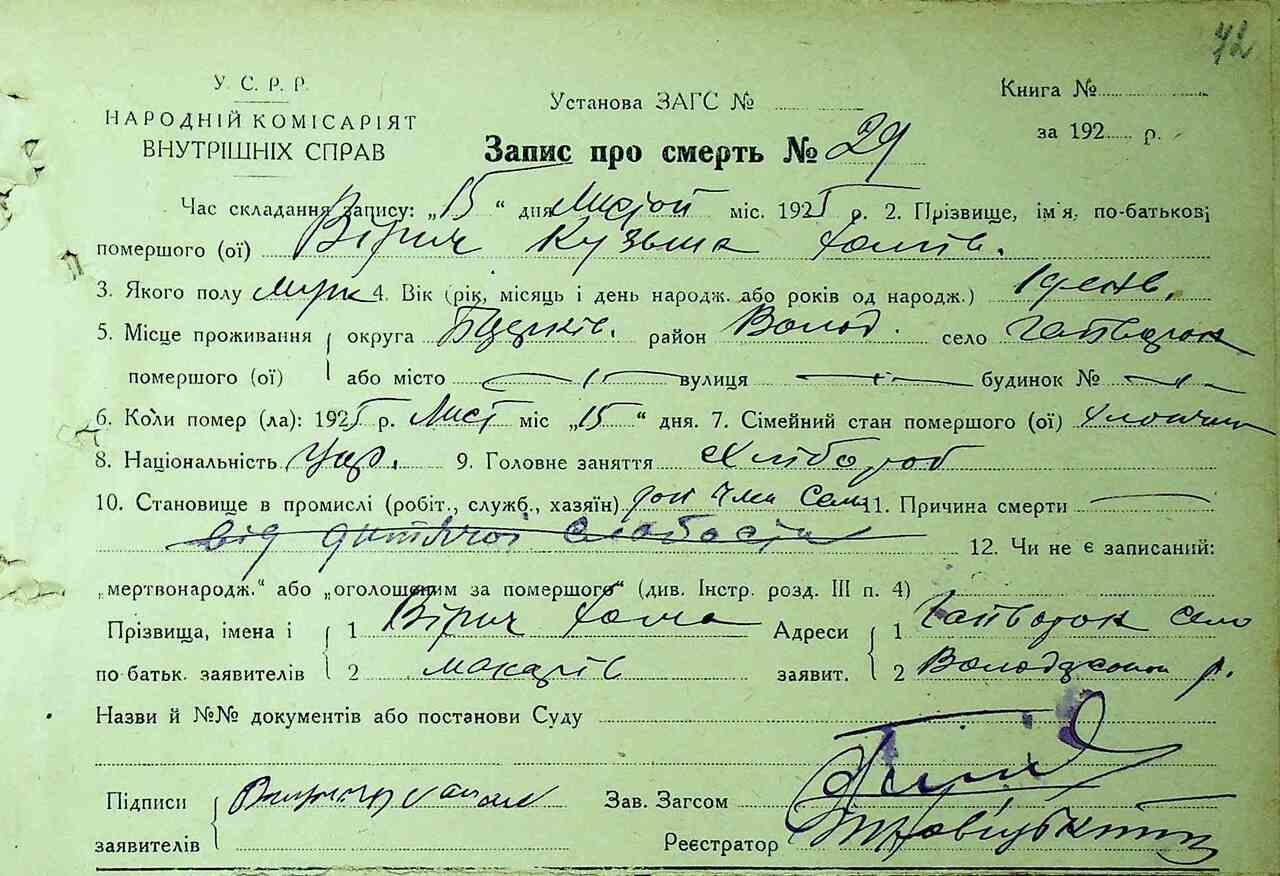 42
У. С. Р. Р.
НАРОДНІЙ КОМІСАРІЯТ
ВНУТРІШНІХ СПРАВ
Установа ЗАГС №
Книга №
за 192 р.
Запис про смерть № 29
Час складання запису: „15“ дня міс. 192 р. 2. Прізвище, ім'я, по-батькові
помершого (ої) Вірич Кузьма Хомів.
3. Якого полу 4. Вік (рік, місяць і день народж. або років од народж.) 1 день.
5. Місце проживання округа район Волод. село Гайворон
помершого (ої) або місто вулиця будинок №
6. Коли помер (ла): 192 р. Лист міс „15“ дня. 7. Сімейний стан помершого (ої)
8. Національність Укр. 9. Головне заняття Хлібороб
10. Становище в промислі (робіт., служб., хазяїн) член сем 11. Причина смерти
від дитячої слабости 12. Чи не є записаний:
„мертвонародж.“ або „оголошеним за помершого“ (див. Інстр. розд. III п. 4)
Прізвища, імена і 1 Вірич Хома Адреси 1 Гайворон село
по батьк. заявителів 2 Макарів заявит. 2 р.
Назви й №№ документів або постанови Суду
Підписи Зав. Загсом
заявителів Реєстратор